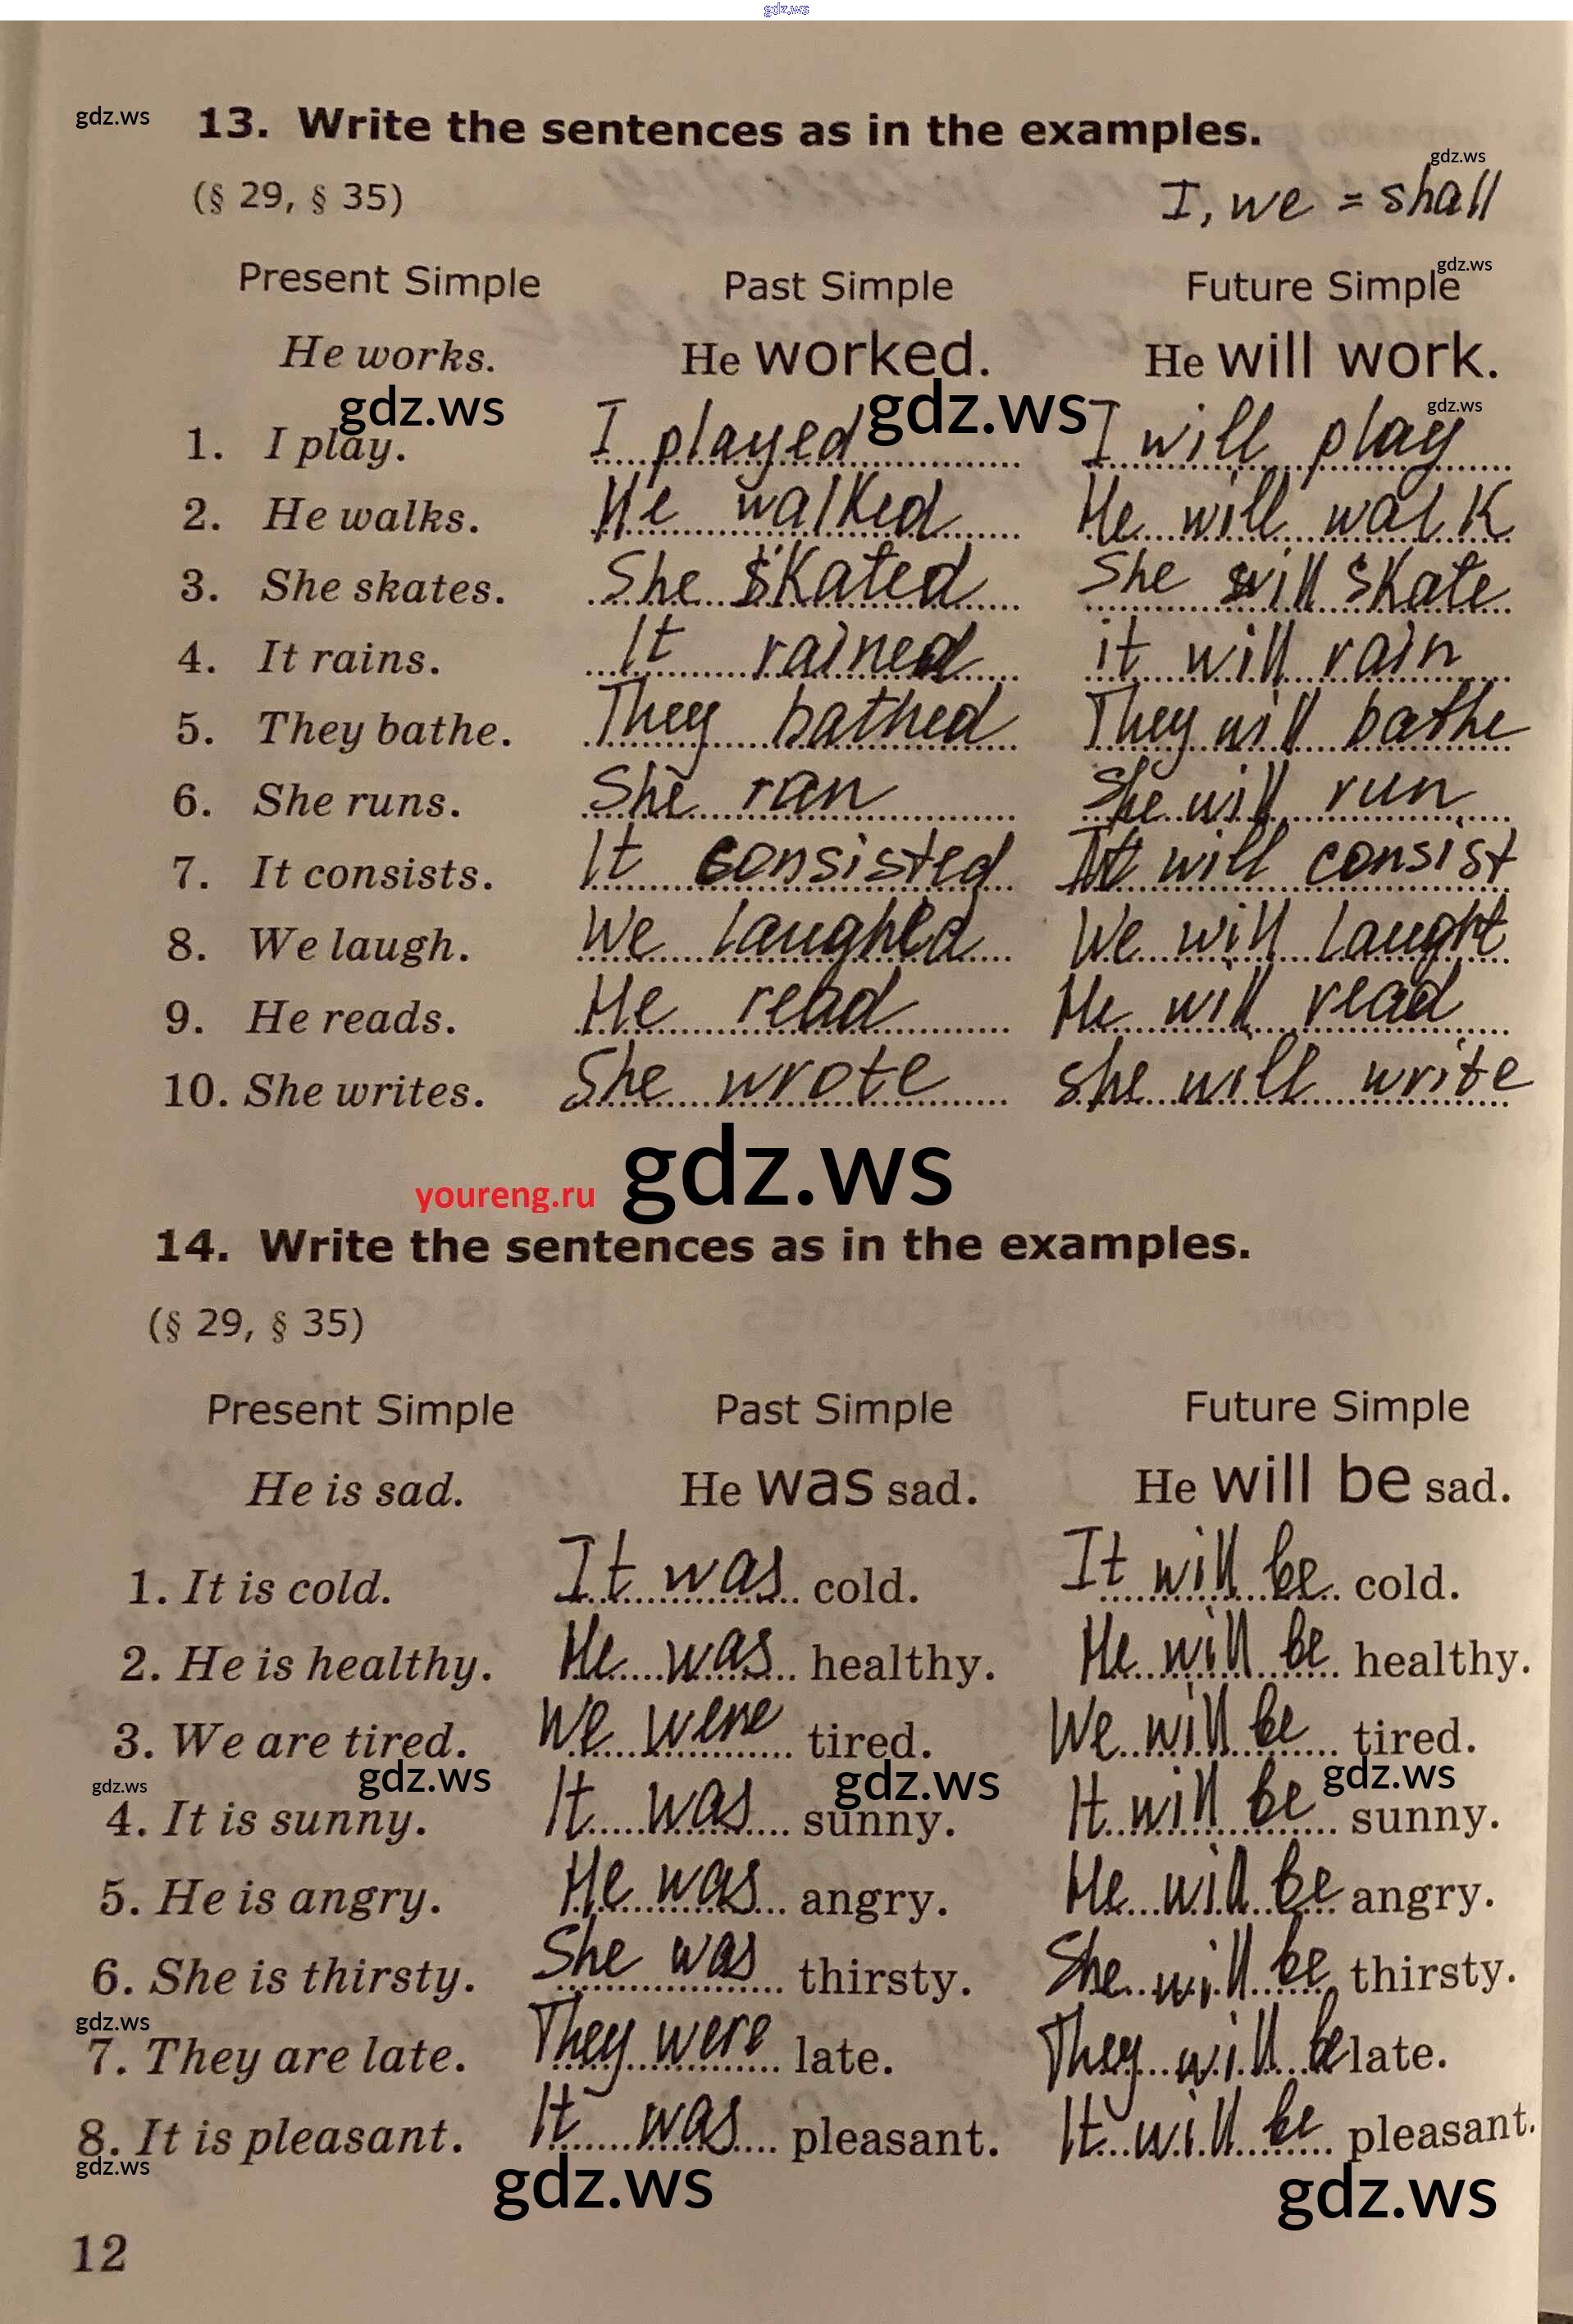 gdz.ws
gdz.ws
13. Write the sentences as in the examples.
gdz.ws
(§ 29, § 35)
I, we = shall
gdz.ws
Present Simple Past Simple Future Simple
He works. He worked. He will work.
gdz.ws gdz.ws gdz.ws
1. I play. I played I will play
2. He walks. He walked He will walk
3. She skates. She skated She will skate
4. It rains. It rained it will rain
5. They bathe. They bathed They will bathe
6. She runs. She ran She will run
7. It consists. It consisted It will consist
8. We laugh. We laughed We will laught
9. He reads. He read He will read
10. She writes. She wrote she will write
youreng.ru gdz.ws
14. Write the sentences as in the examples.
(§ 29, § 35)
Present Simple Past Simple Future Simple
He is sad. He was sad. He will be sad.
1. It is cold. It was cold. It will be cold.
2. He is healthy. He was healthy. He will be healthy.
3. We are tired. We were tired. We will be tired.
gdz.ws gdz.ws gdz.ws gdz.ws
4. It is sunny. It was sunny. It will be sunny.
5. He is angry. He was angry. He will be angry.
6. She is thirsty. She was thirsty. She will be thirsty.
gdz.ws
7. They are late. They were late. They will be late.
8. It is pleasant. It was pleasant. It will be pleasant.
gdz.ws gdz.ws gdz.ws
12